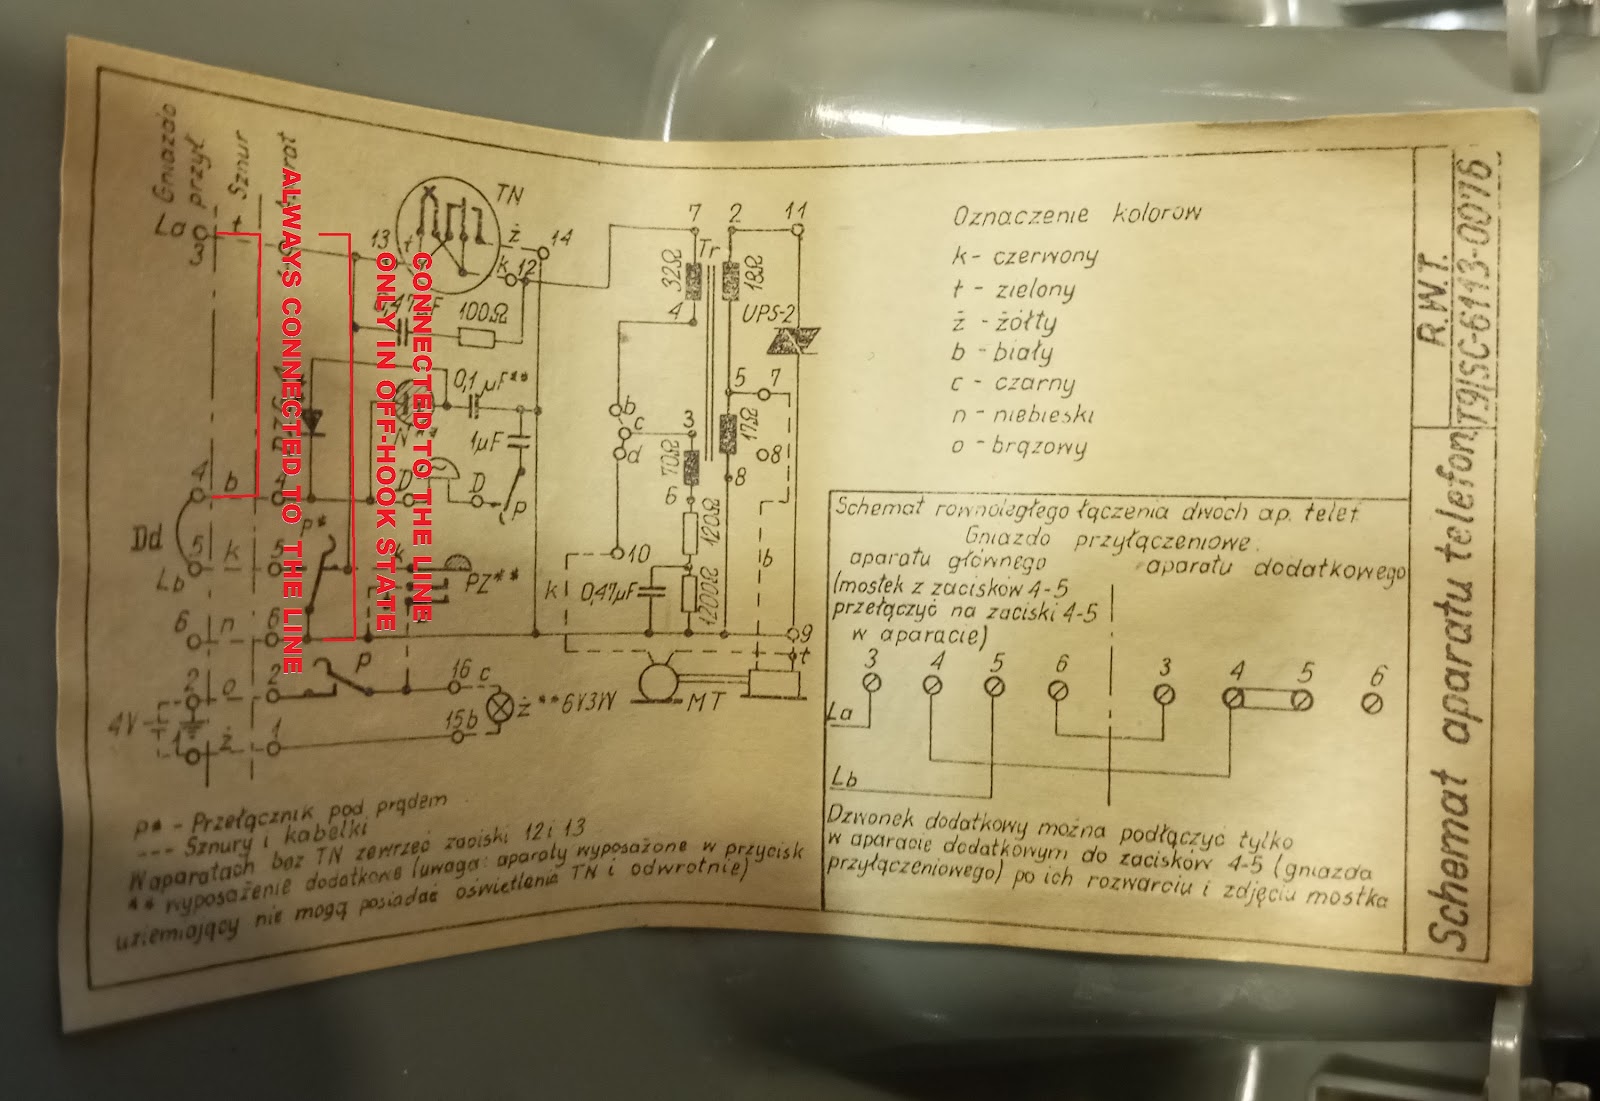 Gniazdo
przył.
Sznur
La
3
t
ALWAYS CONNECTED TO THE LINE
CONNECTED TO THE LINE
ONLY IN OFF-HOOK STATE
TN
13
t
ż
14
k
12
100Ω
0,1 μF**
1μF
4
b
D
D
P
Dd
P*
5
k
5
Lb
k
PZ**
6
n
6
2
o
2
P
16 c
4V
ż**6V3W
15b
1
ż
1
7
2
11
Tr
32Ω
18Ω
4
UPS-2
5
7
b
c
3
d
17Ω
70Ω
8
8
6
10
b
k
0,47μF
1200Ω
9
t
MT
P* - Przełącznik pod prądem
--- Sznury i kabelki
W aparatach bez TN zewrzeć zaciski 12 i 13
** wyposażenie dodatkowe (uwaga: aparaty wyposażone w przycisk
uziemiający nie mogą posiadać oświetlenia TN i odwrotnie)
Oznaczenie kolorów
k - czerwony
t - zielony
ż - żółty
b - biały
c - czarny
n - niebieski
o - brązowy
Schemat równoległego łączenia dwoch ap. telef.
Gniazdo przyłączeniowe.
aparatu głównego
aparatu dodatkowego
(mostek z zacisków 4-5
przełączyć na zaciski 4-5
w aparacie)
3 4 5 6 3 4 5 6
La
Lb
Dzwonek dodatkowy można podłączyć tylko
w aparacie dodatkowym do zacisków 4-5 (gniazda
przyłączeniowego) po ich rozwarciu i zdjęciu mostka
R.W.T.
T9/SC-6113-0076
Schemat aparatu telefon